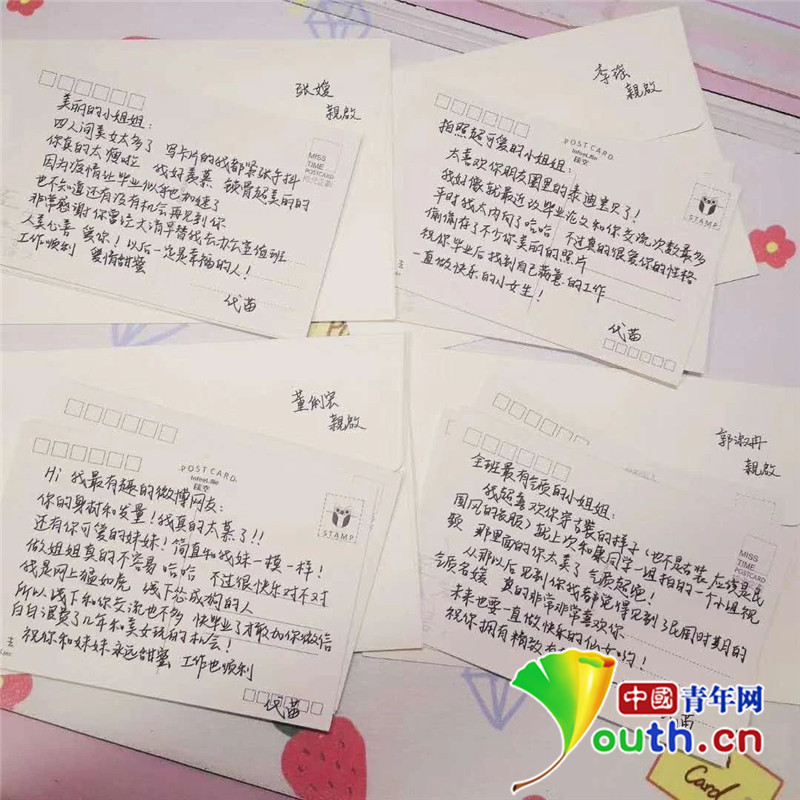 张媛
親啟
美丽的小姐姐:
四人间美女太多了 写卡片的我都紧张手抖
你真的太瘦啦 我好羡慕 锁骨超美丽的
因为疫情让毕业似乎也加速了
也不知道还有没有机会再见到你
非常感谢你曾经大清早替我去办公室值班
人美心善 爱你!以后一定是幸福的人!
工作顺利 爱情甜蜜
代苗
MISS
TIME
POSTCARD
李蕊
親啟
POSTCARD
拍照超可爱的小姐姐:
太喜欢你朋友圈里的泰迪宝贝了!
我好像就最近改毕业论文和你交流次数最多
平时我太内向了哈哈 不过真的很爱你的性格
偷偷存了不少你美丽的照片
祝你毕业后找到自己满意的工作
一直做快乐的小女生!
代苗
STAMP
董俐
親啟
POSTCARD
Hi 我最有趣的微博网友:
你的身材和发量!我真的太慕了!!
还有你可爱的妹妹!简直和我妹一模一样!
做姐姐真的不容易哈哈 不过很快乐对不对
我是网上猛如虎 线下怂成狗的人
所以线下和你交流也不多 快毕业了才敢加你微信
白白浪费了几年和美女玩的机会!
祝你和妹妹永远甜蜜 工作也顺利
代苗
STAMP
郭淑冉
親啟
全班最有气质的小姐姐:
我超喜欢你穿古装的样子(也不是古装 应该是民
国风的衣服)就上次和康同学一组拍的一个小组视
频 那里面的你太美了 气质超绝!
从那以后见到你我都觉得见到了民国时期的
气质名媛 真的非常非常喜欢你
未来也要一直做快乐的仙女哟!
祝你拥有精致
MISS
TIME
POSTCARD
苗
中國青年网
youth.cn
Card